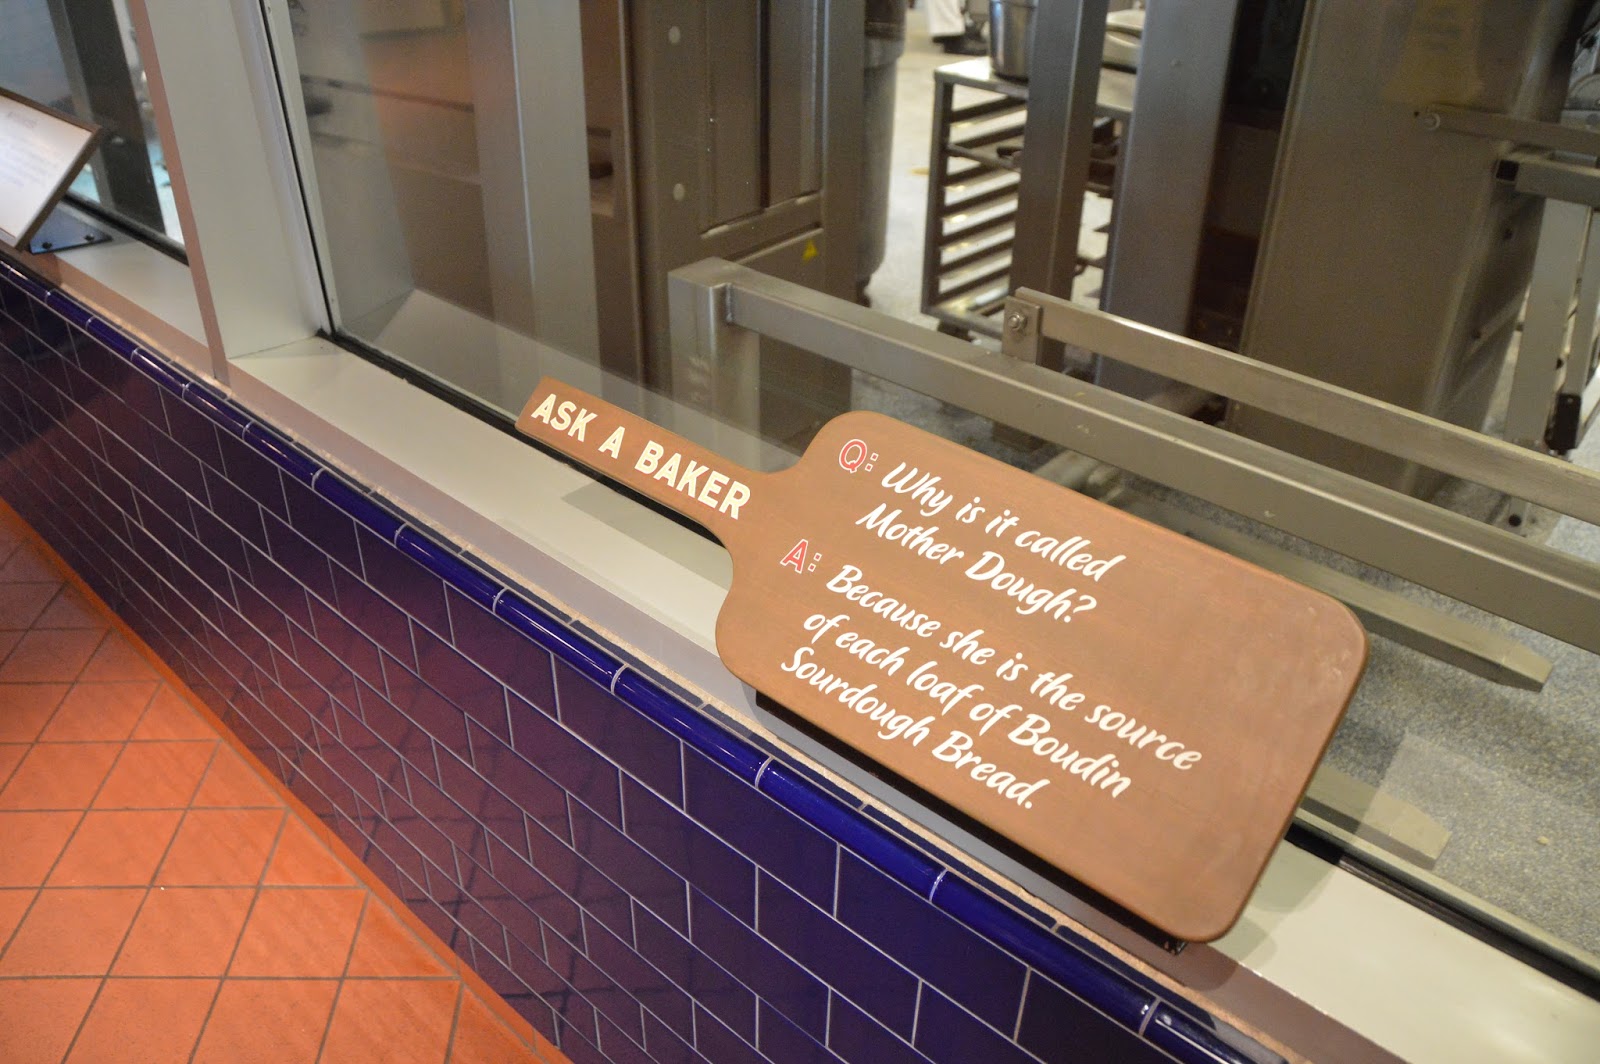 ASK A BAKER
Q: Why is it called
Mother Dough?
A: Because she is the source
of each loaf of Boudin
Sourdough Bread.